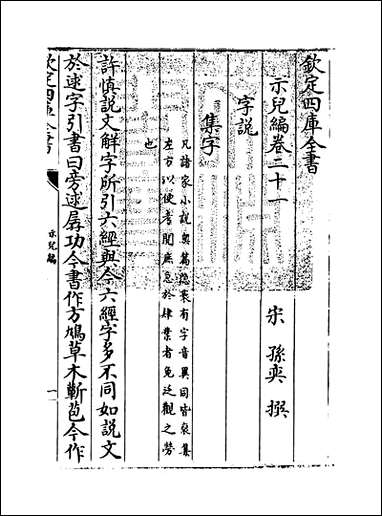 欽定四庫全書
示兒編卷二十一
宋 孫奕 撰
字說
集字
凡諸家小說與篇隱袠有字音異同皆裒集
左方以便考閱庶怠於肆業者免泛觀之勞
也
許慎說文解字所引六經與今六經字多不同如說文
於逑字引書曰旁逑孱功今書作方鳩草木蔪苞今作
欽定四庫全書
示兒編
一